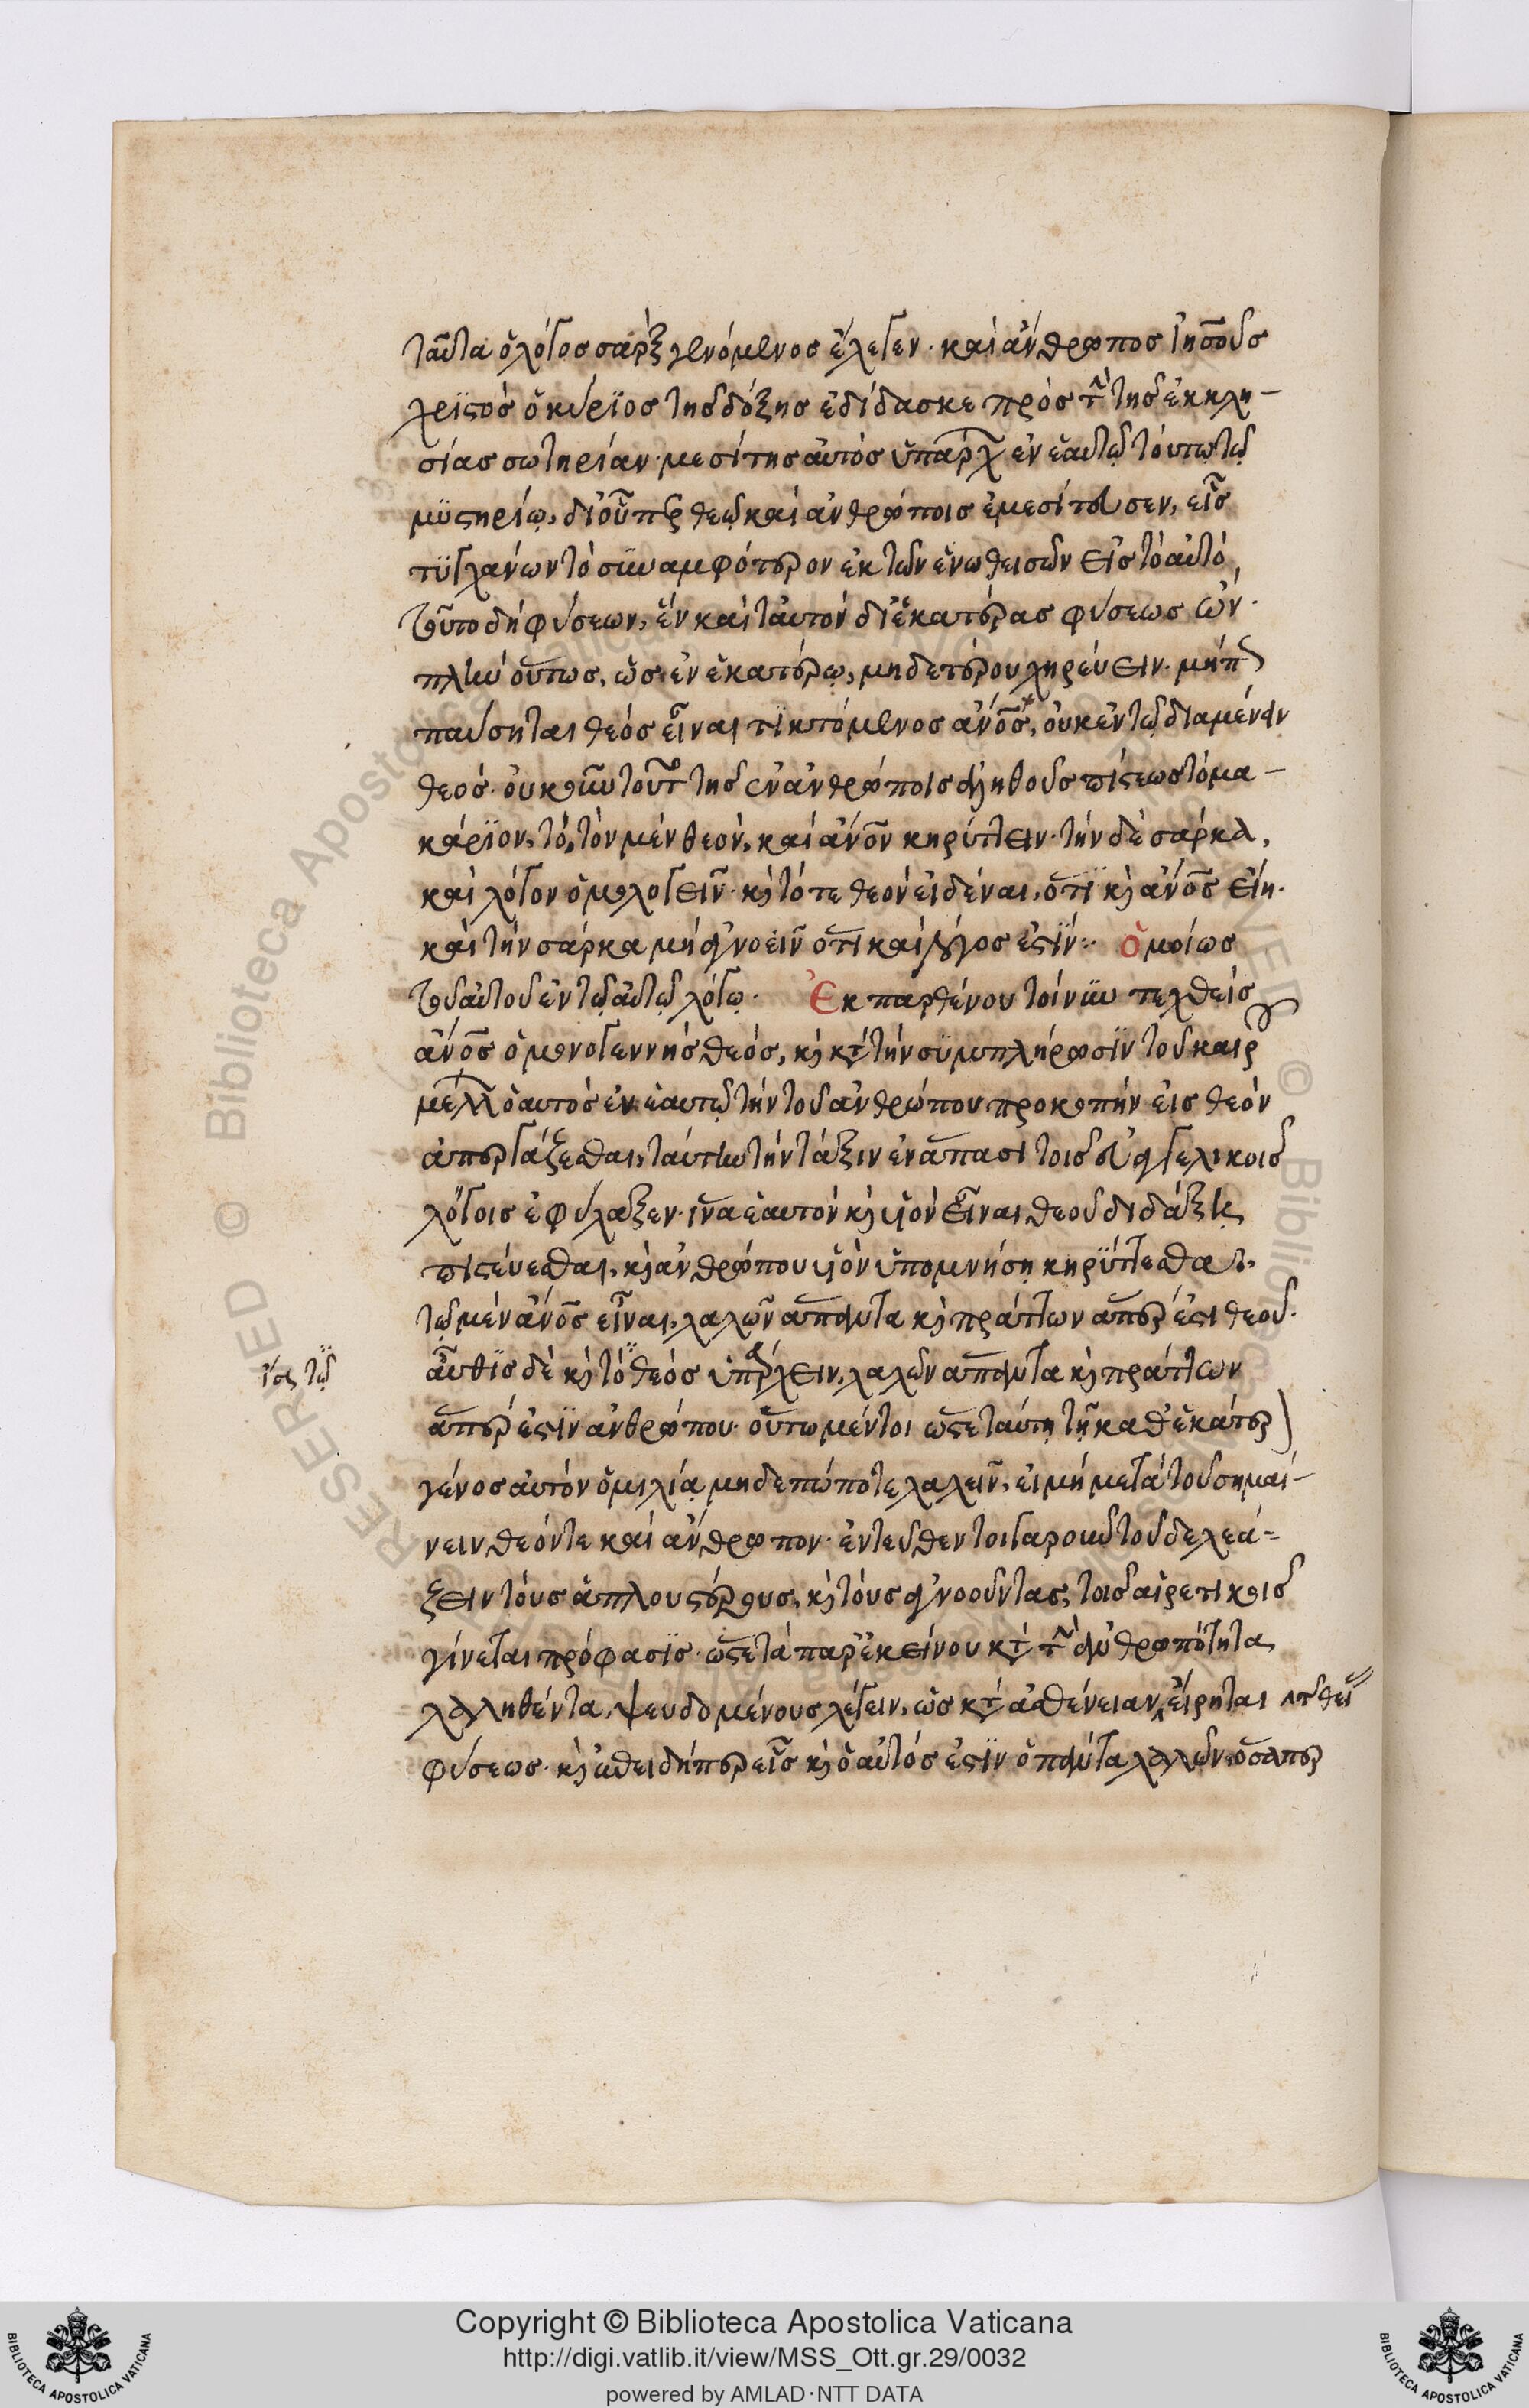 ταῦτα ὁ λόγος σάρξ γενόμενος ἔλεγεν· καὶ ἄνθρωπος ἰησοῦς
χριστὸς ὁ κύριος τῆς δόξης ἐδίδασκε πρὸς τ̀ τῆς ἐκκλη-
σίας σωτηρίαν· μεσίτης αὐτὸς ὑπάρχ ἐν ἑαυτῷ τούτῳ τῷ
μυστηρίῳ, δι' οὗπερ θεῷ καὶ ἀνθρώποις ἐμεσίτευσεν, εἷς
τυγχάνων τὸ συναμφότερον ἐκ τῶν ἑνωθεισῶν εἰς τὸ αὐτὸ
τοῦτο δὴ φύσεων, ἓν καὶ ταυτὸν δι' ἑκατέρας φύσεως ὤν·
πλὴν οὕτως, ὡς ἐν ἑκατέρῳ, μηδετέρου χηρεύειν· μήπ
παύσηται θεὸς εἶναι τικτόμενος ἄνος, οὐκ ἐν τῷ διαμένειν
θεός· οὐκοῦν τοῦτ τῆς ἐν ἀνθρώποις ἀληθοῦς πίστεως τὸ μα-
κάριον, τὸ, τὸν μὲν θεὸν, καὶ ἄνον κηρύττειν· τὴν δὲ σάρκα,
καὶ λόγον ὁμολογεῖν· κỳ τό τε θεὸν εἰδέναι, ὅτι κỳ ἄνος εἴη·
καὶ τὴν σάρκα μὴ ἀγνοεῖν ὅτι καὶ λόγος ἐστίν:· Ὁμοίως
τοῦ αὐτοῦ ἐν τῷ αὐτῷ λόγῳ· Ἐκ παρθένου τοίνυν τεχθεὶς
ἄνος ὁ μονογεννὴς θεός, κỳ κτ τὴν συμπλήρωσιν τοῦ καιρ
μέλλ ὁ αὐτὸς ἐν ἑαυτῷ τὴν τοῦ ἀνθρώπου προκοπὴν εἰς θεὸν
ἀπεργάζεσθαι, ταύτην τὴν τάξιν ἐν ἅπασι τοῖς εὐαγγελικοῖς
λόγοις ἐφύλαξεν· ἵνα ἑαυτὸν κỳ υἱὸν εἶναι θεοῦ διδάξῃ
πιστεύεσθαι, κỳ ἀνθρώπου υἱὸν ὑπομνήσῃ κηρύττεσθαι·
τῷ μὲν ἄνος εἶναι, λαλῶν ἅπαντα κỳ πράττων ἅπερ ἐστὶ θεοῦ·
ἴσς τῷ
αὖθις δὲ κỳ τὸ θεὸς ὑπάρχειν, λαλῶν ἅπαντα κỳ πράττων
ἅπερ ἐστὶν ἀνθρώπου· οὕτω μέντοι ὥστε ταύτῃ τῇ καθ' ἑκάτερ
γένος αὐτὸν ὁμιλίᾳ μηδεπώποτε λαλεῖν, εἰ μὴ μετὰ τοῦ σημαί-
νειν θεόν τε καὶ ἄνθρωπον· ἐντεῦθεν τοιγαροῦν τοῦ δελεά-
ζειν τοὺς ἁπλουστέρους, κỳ τοὺς ἀγνοοῦντας, τοῖς αἱρετικοῖς
γίνεται πρόφασις· ὥστε τὰ παρ' ἐκείνου κτ τ̀ ἀνθρωπότητα
λαληθέντα, ψευδομένους λέγειν, ὡς κτ ἀσθένειαν εἴρηται
φύσεως· κỳ ἐπειδήπερ εἷς κỳ ὁ αὐτός ἐστιν ὁ πάντα λαλῶν ὅσαπερ
Copyright © Biblioteca Apostolica Vaticana
http://digi.vatlib.it/view/MSS_Ott.gr.29/0032
powered by AMLAD·NTT DATA